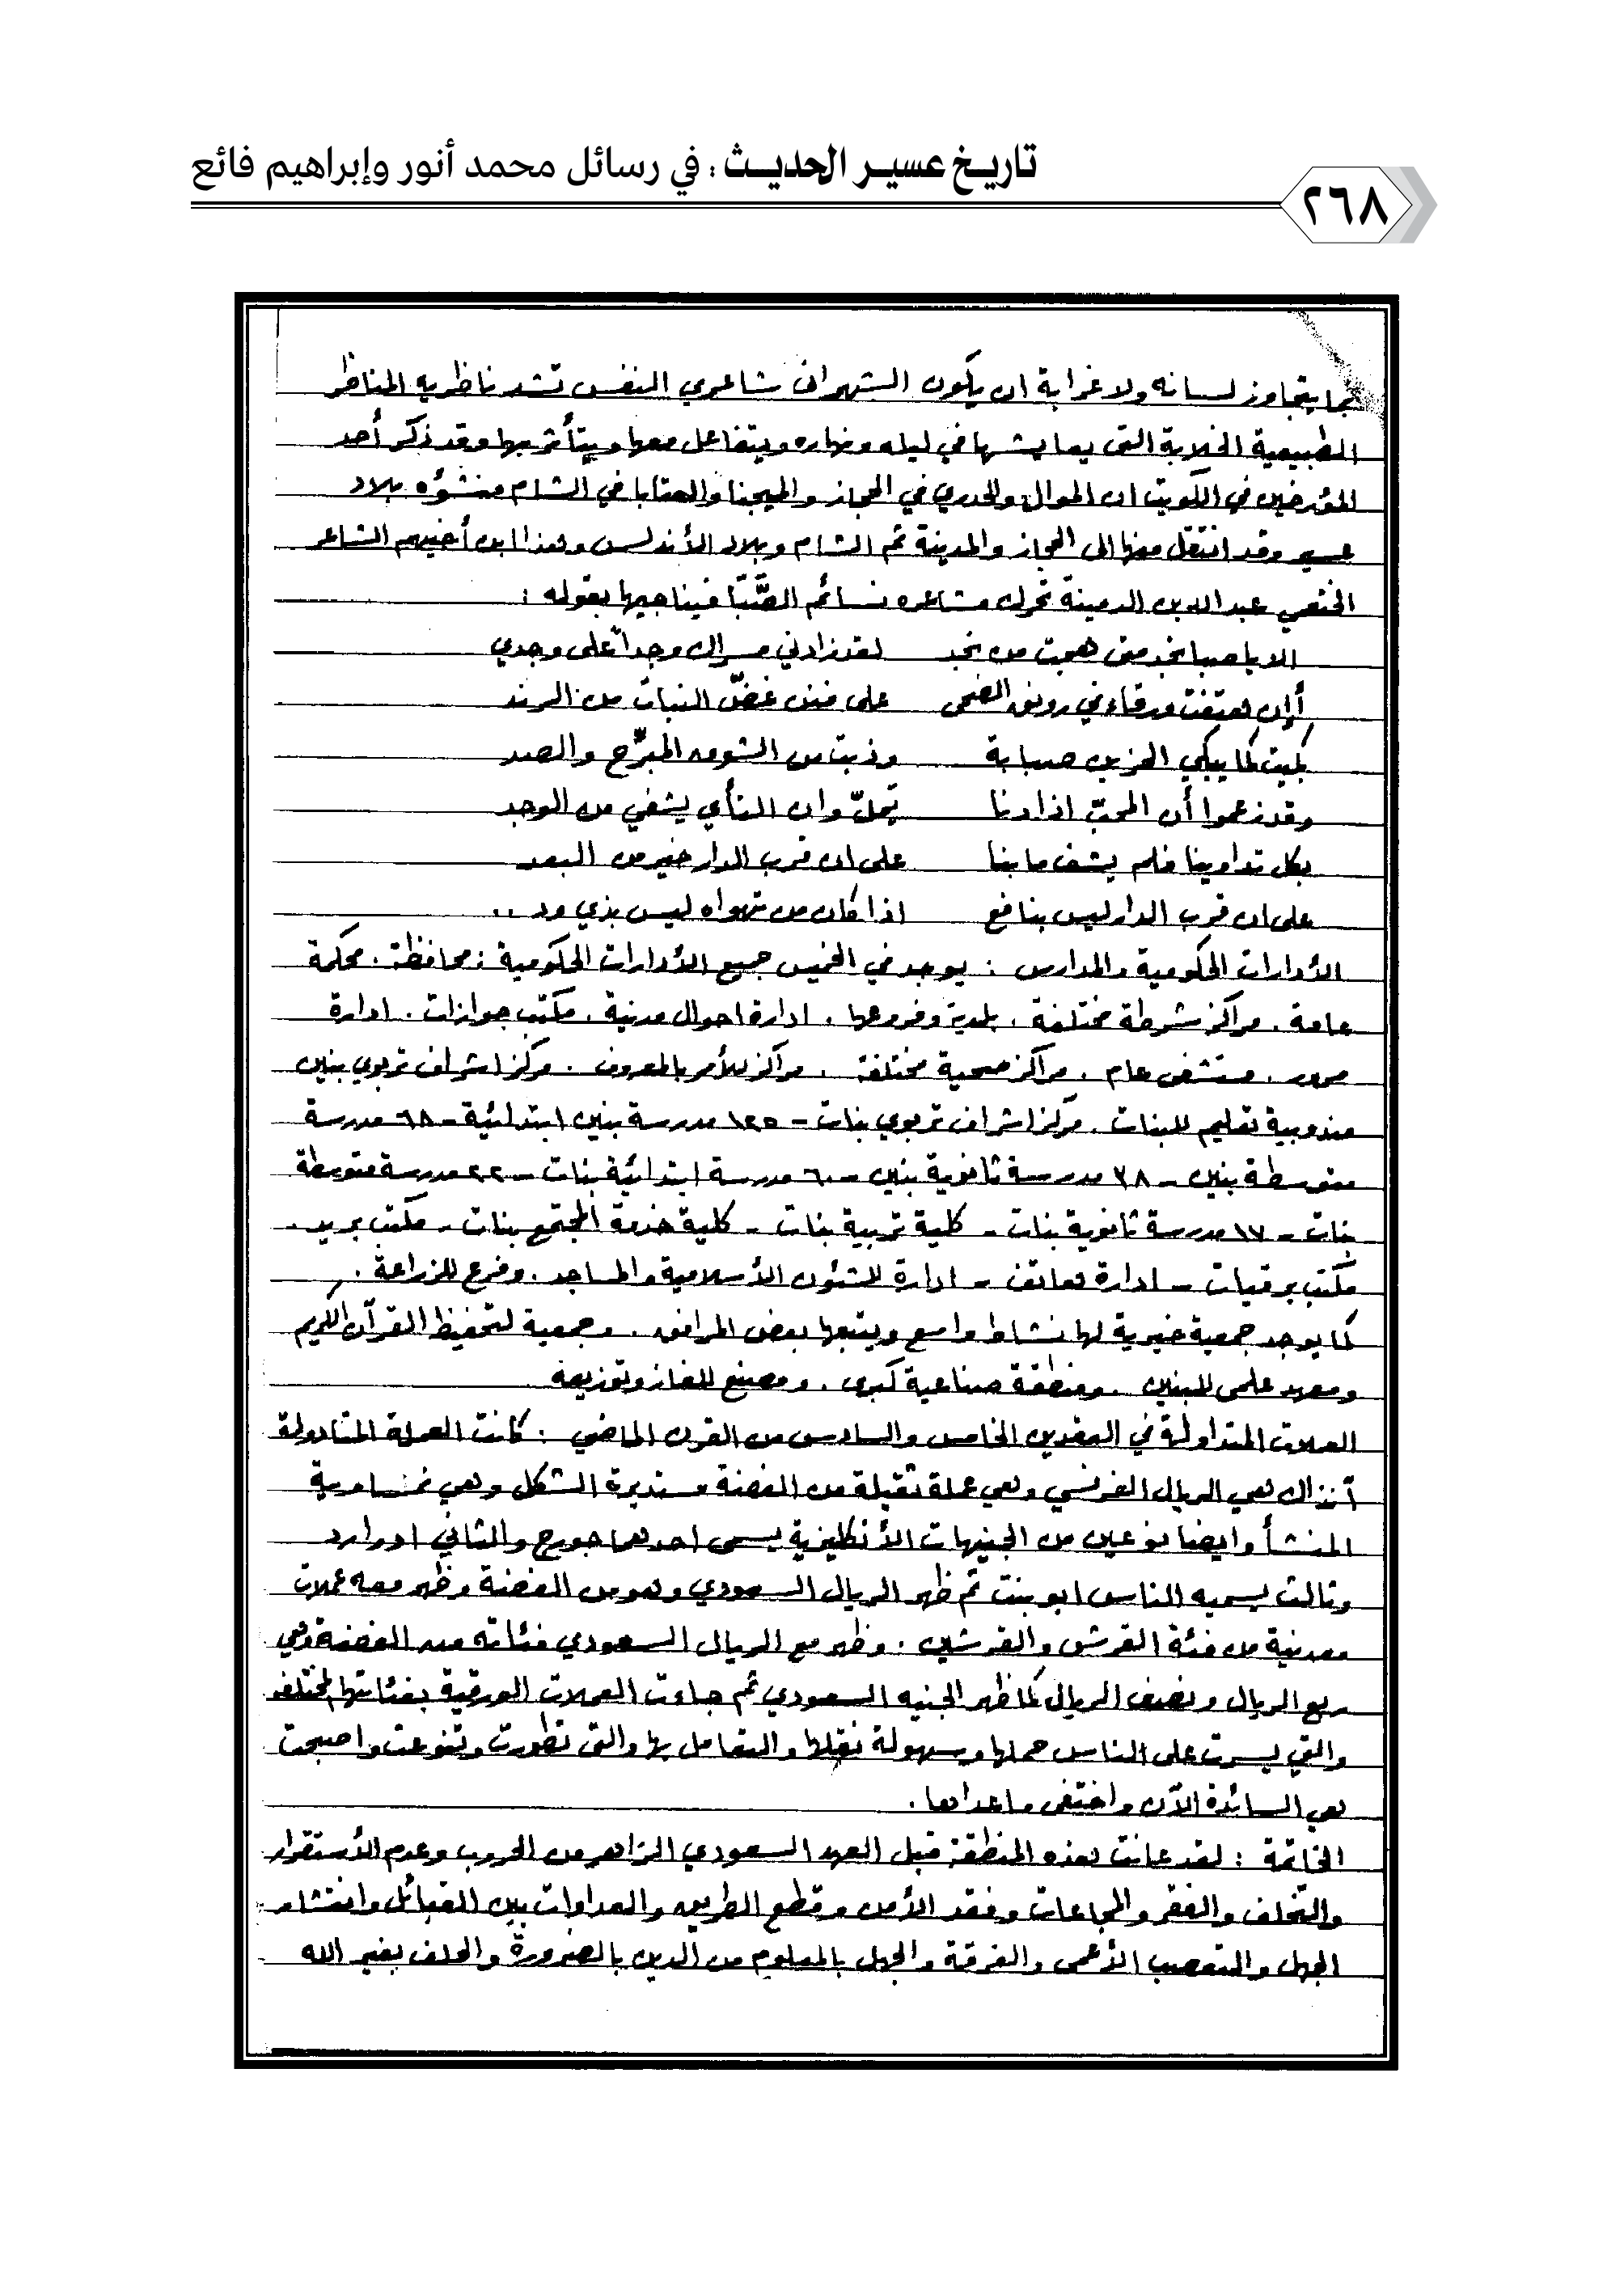 تاريخ عسير الحديث : في رسائل محمد أنور وإبراهيم فائع
٢٦٨
بما يتجاوز لسانه ولا غرابة ان يكون الشهراني شاعري النفس تشد ناظريه المناظر
الطبيعية الخلابة التي يعايشها في ليله ونهاره ويتفاعل معها ويتأثر بها وقد ذكر أحد
المؤرخين في الكويت ان الموال والحدري في الحجاز والميجنا والعتابا في الشام منشؤه بلاد
عسير وقد انتقل منها الى الحجاز والمدينة ثم الشام وبلاد الأندلس وهذا ابن أخيهم الشاعر
الخثعمي عبد الله بن الدمينة تحرك مشاعره نسائم الصَّبَا فيناجيها بقوله :
الا يا صبا نجد متى هجت من نجد لقد زادني مسراك وجداً على وجدي
أإن هتفت ورقاء في رونق الضحى على فنن غضّ النبات من الرند
بكيت كما يبكي الحزين صبابة وذبت من الشوق المبرّح والصد
وقد زعموا أن المحبّ اذا دنا يملّ وان النأي يشفي من الوجد
بكل تداوينا فلم يشف ما بنا على ان قرب الدار خير من البعد
على ان قرب الدار ليس بنافع اذا كان من تهواه ليس بذي ود ..
الأدارات الحكومية والمدارس : يوجد في الخميس جميع الأدارات الحكومية : محافظة . محكمة
عامة . مراكز شرطة مختلفة . بلدية وفروعها . ادارة احوال مدنية . مكتب جوازات . ادارة
مرور . مستشفى عام . مراكز صحية مختلفة . مراكز للأمر بالمعروف . مركز اشراف تربوي بنين
مندوبية تعليم للبنات . مركز اشراف تربوي بنات - ١٢٥ مدرسة بنين ابتدائية - ٦٨ مدرسة
متوسطة بنين - ٣٨ مدرسة ثانوية بنين - ٦٠ مدرسة ابتدائية بنات - ٢٢ مدرسة متوسطة
بنات - ١٧ مدرسة ثانوية بنات - كلية تربية بنات - كلية خدمة المجتمع بنات - مكتب بريد .
مكتب برقيات - ادارة هاتف - ادارة للشئون الأسلامية والمساجد . وفرع للزراعة .
كما يوجد جمعية خيرية لها نشاط واسع ويتبعها بعض المرافق . وجمعية لتحفيظ القرآن الكريم
ومعهد علمي للبنين . ومنطقة صناعية كبرى . ومصنع للغاز وتوزيعه
العملات المتداولة في العقدين الخامس والسادس من القرن الماضي : كانت العملة المتداولة
آنذاك هي الريال الفرنسي وهي عملة ثقيلة من الفضة مستديرة الشكل وهي نمساوية
المنشأ وايضا نوعين من الجنيهات الأنكليزية يسمى احدهما جورج والثاني ادوارد
وثالث يسميه الناس ابو بنت ثم ظهر الريال السعودي وهو من الفضة وظهر معه عملات
معدنية من فئة القرش والقرشين . وظهر مع الريال السعودي فئاته من الفضة وهي
ربع الريال ونصف الريال كما ظهر الجنيه السعودي ثم جاءت العملات الورقية بفئاتها المختلفه
والتي يسرت على الناس حملها وسهولة نقلها والتعامل بها والتي تطورت وتنوعت واصبحت
هي السائدة الآن واختفى ما عداها .
الخاتمة : لقد عانت هذه المنطقة قبل العهد السعودي الزاهر من الحروب وعدم الأستقرار
والتخلف والفقر والمجاعات وفقد الأمن وقطع الطريق والعداوات بين القبائل وانتشار
الجهل والتعصب الأعمى والفرقة والجهل بالمعلوم من الدين بالضرورة والحلف بغير الله